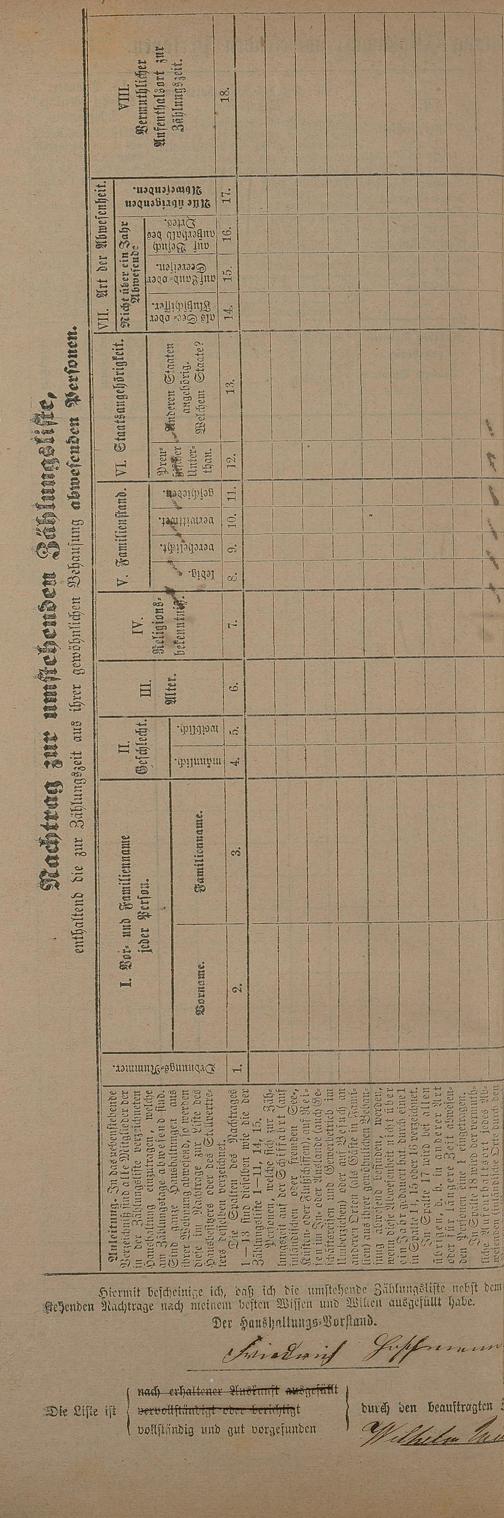 Nachtrag zur umstehenden Zählungsliste,
enthaltend die zur Zählungszeit aus ihrer gewöhnlichen Behausung abwesenden Personen.
Anleitung. In das nebenstehende
Verzeichniß sind alle Mitglieder der
in der Zählungsliste verzeichneten
Haushaltung einzutragen, welche
am Zählungstage abwesend sind.
Sind ganze Haushaltungen aus
ihrer Wohnung abwesend, so werden
die im Nachtrage zur Liste des
Hausbesitzers oder des Stellvertre-
ters desselben verzeichnet.
Die Spalten des Nachtrages
1—13 sind dieselben wie die der
Zählungsliste 1—11, 14, 15.
Personen, welche sich zur Zäh-
lungszeit auf der Schifffahrt (auf
inländischen oder fremden See-,
Küsten- oder Flußschiffen) auf Rei-
sen im In- oder Auslande (auch Ge-
schäftsreisen und Gewerbebetrieb im
Umherziehen) oder auf Besuch an
anderen Orten (als Gäste in Fami-
lien) aus ihrer gewöhnlichen Behau-
sung abwesend befinden, werden,
wenn diese Abwesenheit nicht über
ein Jahr gedauert hat, durch eine 1
in Spalte 14, 15 oder 16 verzeichnet.
In Spalte 17 wird bei allen
übrigen, d. h. in anderer Art
oder für längere Zeit abwesen-
den Personen 1 eingetragen.
In Spalte 18 wird der vermuth-
liche Aufenthaltsort jedes Ab-
Ordnungs-Nummer.
1.
I. Vor- und Familienname
jeder Person.
Vorname.
2.
Familienname.
3.
II.
Geschlecht.
männlich.
4.
weiblich.
5.
III.
Alter.
6.
IV.
Religions-
bekenntniß.
7.
V. Familienstand.
ledig.
8.
verehelicht.
9.
verwittwet.
10.
geschieden
11.
VI. Staatsangehörigkeit.
Preu-
ßischer
Unter-
than.
12.
Anderen Staaten
angehörig.
Welchem Staate?
13.
VII. Art der Abwesenheit.
Nicht über ein Jahr
Abwesende
als See- oder
Flußschiffer.
14.
auf Land- oder
Seereisen.
15.
auf Besuch
außerhalb des
Ortes.
16.
Alle übrigen
Abwesenden.
17.
VIII.
Vermuthlicher
Aufenthaltsort zur
Zählungszeit.
18.
Hiermit bescheinige ich, daß ich die umstehende Zählungsliste nebst dem
stehenden Nachtrage nach meinem besten Wissen und Willen ausgefüllt habe.
Der Haushaltungs-Vorstand.
Friedrich
Die Liste ist
nach erhaltener Auskunft ausgefüllt
vervollständigt oder berichtigt
vollständig und gut vorgefunden
durch den beauftragten
Wilhelm